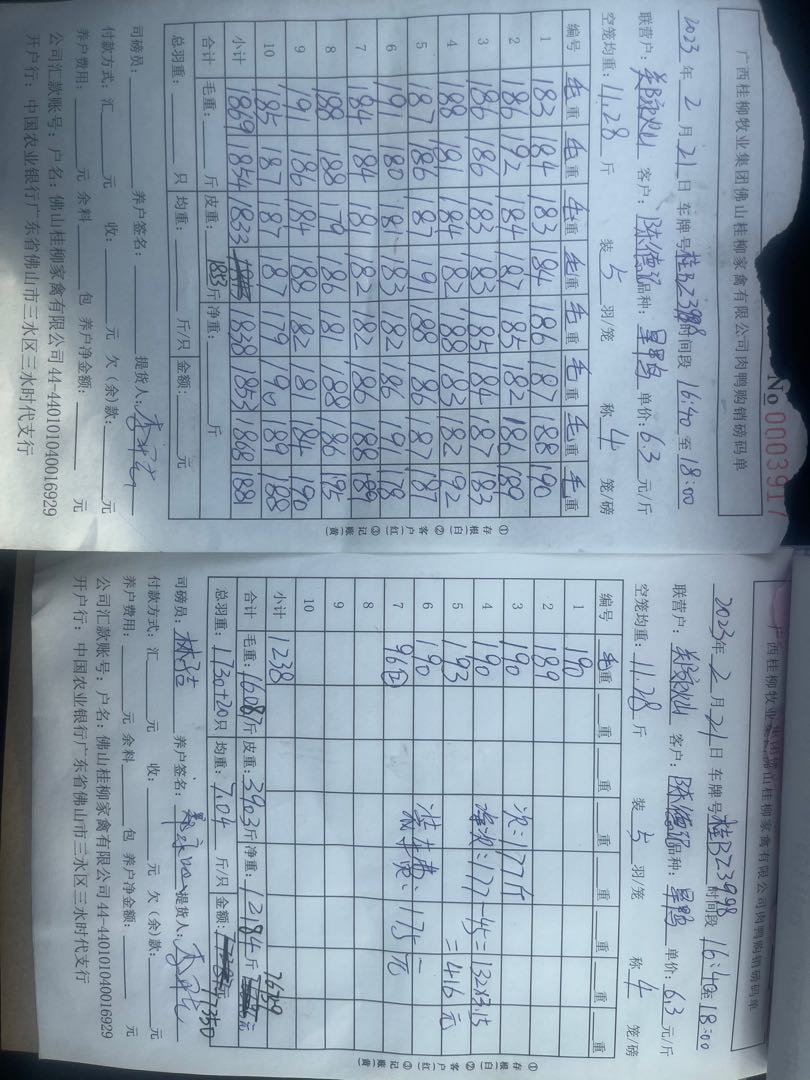 广西桂柳牧业集团佛山桂柳家禽有限公司肉鸭购销磅码单
No 0003917
2023年2月21日 车牌号桂BZ3998 时间段 16:40至18:00
联营户： 客户：陈德 品种： 单价：6.3元/斤
空笼均重：11.28斤 装5羽/笼 称4笼/磅
编号 毛重 毛重 毛重 毛重 毛重 毛重 毛重 毛重
1 183 184 183 184 186 187 188 190
2 186 192 184 187 185 182 186 189
3 186 186 183 183 185 184 187 183
4 188 181 184 182 188 183 182 192
5 187 186 187 191 188 186 187 187
6 191 180 181 183 182 186 191 178
7 184 184 181 182 182 186 188 189
8 188 188 179 186 181 188 186 195
9 191 186 184 188 182 181 184 190
10 185 187 187 187 179 190 189 188
小计 1869 1854 1833 1838 1853 1868 1881
合计 毛重：斤 皮重：斤 净重：斤
1853
总羽重：只 均重：斤/只 金额：元
司磅员： 养户签名： 提货人：
付款方式：汇元 收：元 欠（余）款：元
养户费用：元 余料包 养户净金额：元
公司汇款账号：户名：佛山桂柳家禽有限公司 44-440101040016929
开户行：中国农业银行广东省佛山市三水区三水时代支行
①存根（白）②客户（红）③记账（黄）
广西桂柳牧业集团佛山桂柳家禽有限公司肉鸭购销磅码单
2023年2月21日 车牌号桂BZ3998 时间段 16:40至18:00
联营户： 客户：陈德 品种： 单价：6.3元/斤
空笼均重：11.28斤 装5羽/笼 称4笼/磅
编号 毛重 重 重 重 重 重 重 重
1 190
2 189
3 190 次：177斤
4 190 净次：177-45=132×3.15
5 193 =416元
6 190 装车费：
7 96② 175元
8
9
10
小计 1238
合计 毛重：16087斤 皮重：3903斤 净重：12184斤
总羽重：1730+20只 均重：7.04斤/只 金额：元
司磅员： 养户签名： 提货人：
付款方式：汇元 收：元 欠（余）款：元
养户费用：元 余料包 养户净金额：元
公司汇款账号：户名：佛山桂柳家禽有限公司 44-440101040016929
开户行：中国农业银行广东省佛山市三水区三水时代支行
①存根（白）②客户（红）③记账（黄）